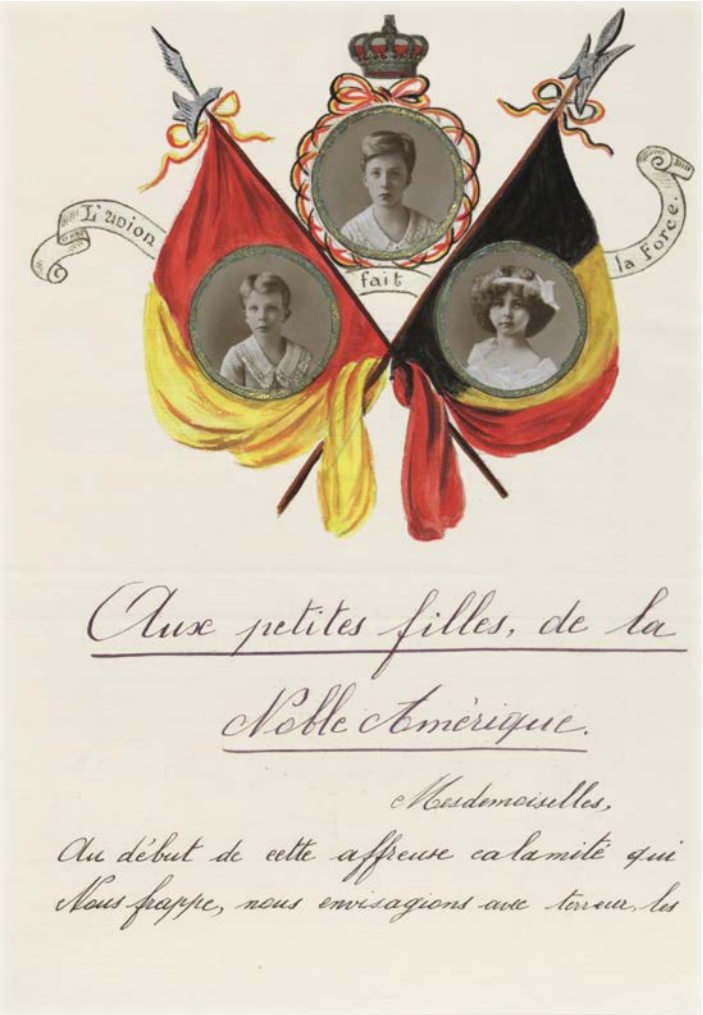 L'union
fait
la Force.
Aux petites filles, de la
Noble Amérique.
Mesdemoiselles,
Au début de cette affreuse calamité qui
Nous frappe, nous envisagions avec terreur, les